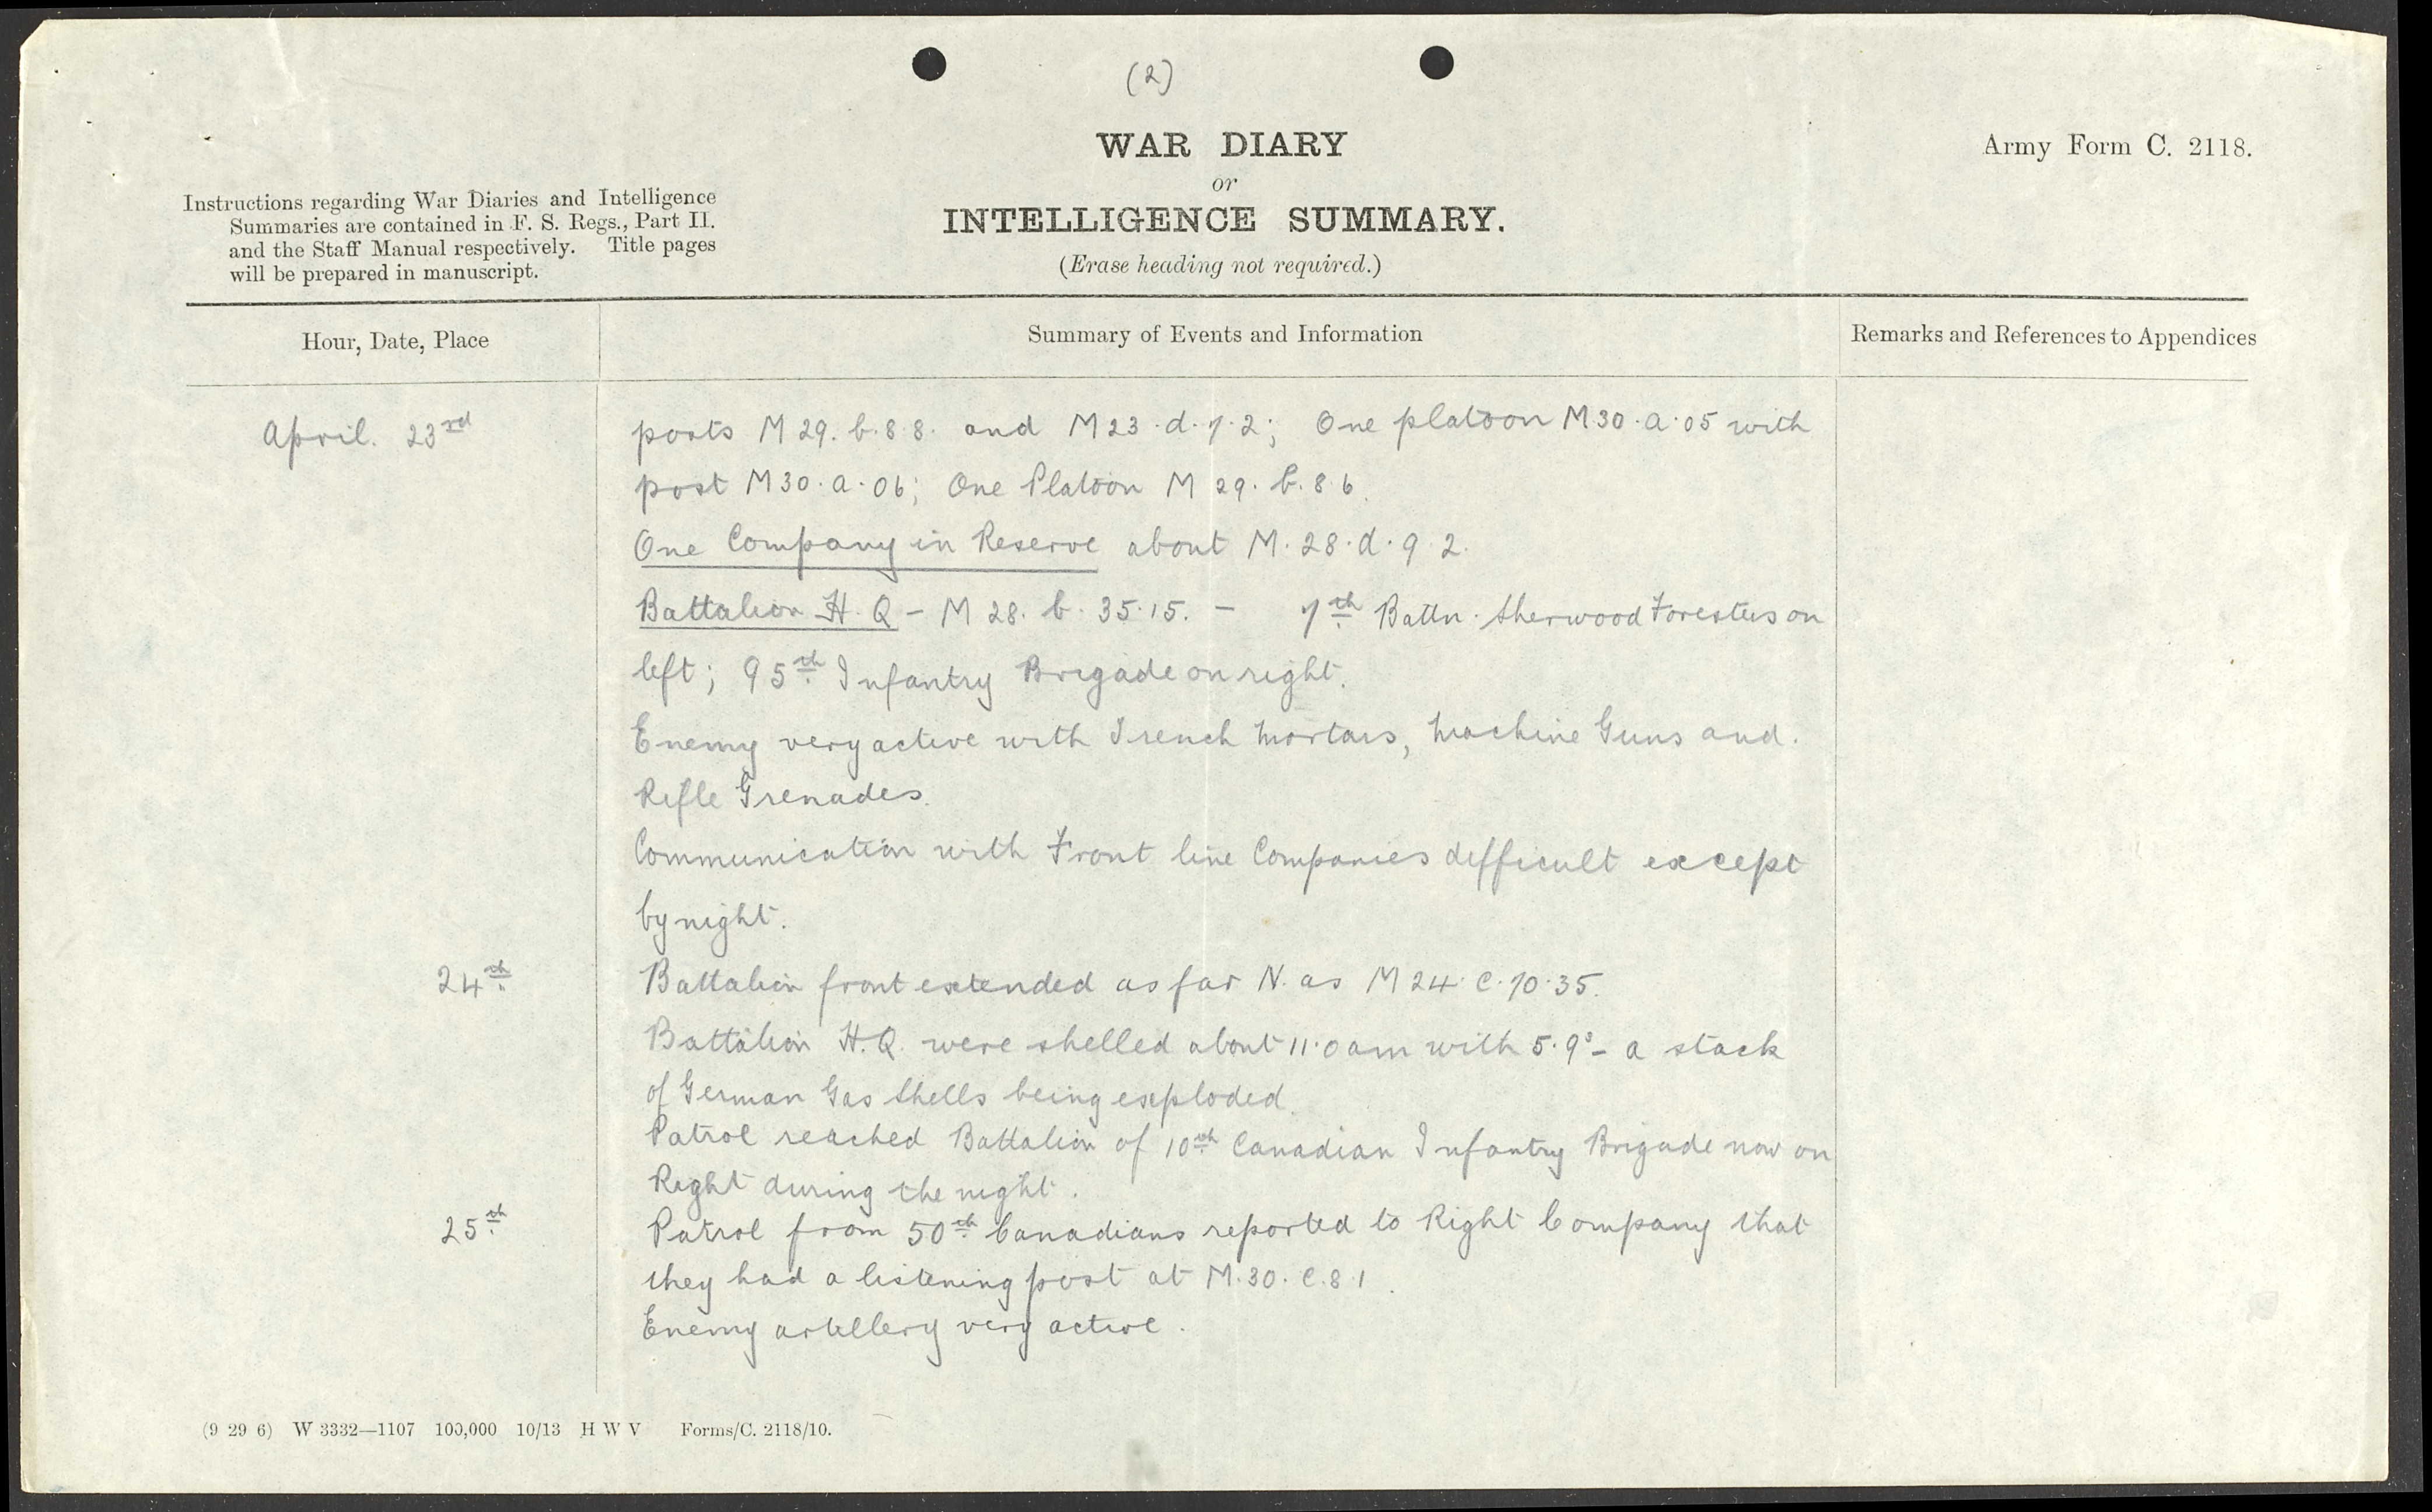 (2)
WAR DIARY
or
INTELLIGENCE SUMMARY.
(Erase heading not required.)
Army Form C. 2118.
Instructions regarding War Diaries and Intelligence
Summaries are contained in F. S. Regs., Part II.
and the Staff Manual respectively. Title pages
will be prepared in manuscript.
Hour, Date, Place
Summary of Events and Information
Remarks and References to Appendices
April. 23rd
posts M 29. b. 8.8. and M 23.d.7.2; One platoon M 30.a.05 with
post M 30.a.06; One Platoon M 29. b. 8.6.
One Company in Reserve about M. 28.d.9.2.
Battalion H.Q - M 28. b. 35.15. - 7th Battn. Sherwood Foresters on
left; 95th Infantry Brigade on right.
Enemy very active with Trench Mortars, Machine Guns and.
Rifle Grenades.
Communication with Front line Companies difficult except
by night.
24th
Battalion front extended as far N. as M 24.c.70.35.
Battalion H.Q. were shelled about 11.0 am with 5.9s - a stack
of German Gas Shells being exploded.
Patrol reached Battalion of 10th Canadian Infantry Brigade now on
Right during the night.
25th
Patrol from 50th Canadians reported to Right Company that
they had a listening post at M.30.c.8.1.
Enemy artillery very active.
(9 29 6) W 3332—1107 100,000 10/13 H W V Forms/C. 2118/10.